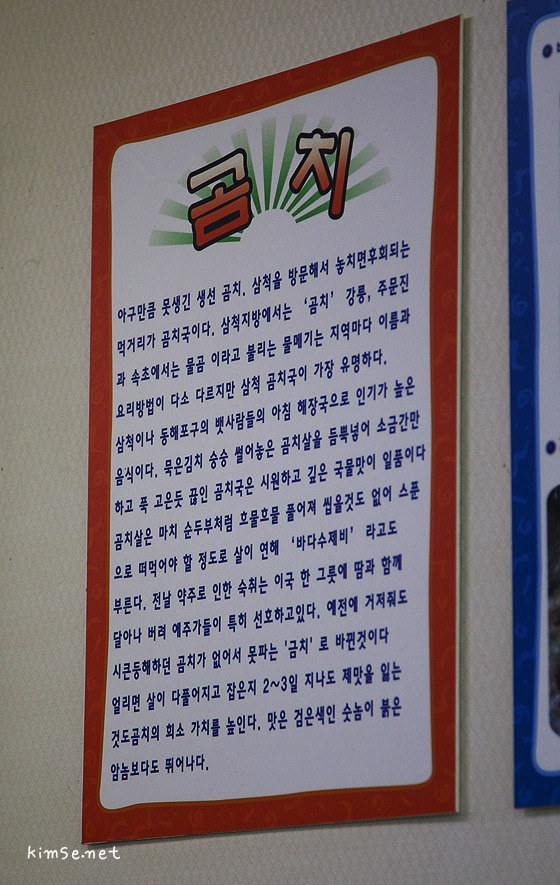 곰치
아구만큼 못생긴 생선 곰치. 삼척을 방문해서 놓치면후회되는
먹거리가 곰치국이다. 삼척지방에서는 ‘곰치’ 강릉, 주문진
과 속초에서는 물곰 이라고 불리는 물메기는 지역마다 이름과
요리방법이 다소 다르지만 삼척 곰치국이 가장 유명하다.
삼척이나 동해포구의 뱃사람들의 아침 해장국으로 인기가 높은
음식이다. 묵은김치 숭숭 썰어놓은 곰치살을 듬뿍넣어 소금간만
하고 푹 고은듯 끊인 곰치국은 시원하고 깊은 국물맛이 일품이다
곰치살은 마치 순두부처럼 흐물흐물 풀어져 씹을것도 없어 스푼
으로 떠먹어야 할 정도로 살이 연해 ‘바다수제비’ 라고도
부른다. 전날 약주로 인한 숙취는 이국 한 그릇에 땀과 함께
달아나 버려 애주가들이 특히 선호하고있다. 예전에 거저줘도
시큰둥해하던 곰치가 없어서 못파는 '금치' 로 바뀐것이다
얼리면 살이 다풀어지고 잡은지 2~3일 지나도 제맛을 잃는
것도곰치의 희소 가치를 높인다. 맛은 검은색인 숫놈이 붉은
암놈보다도 뛰어나다.
kimse.net